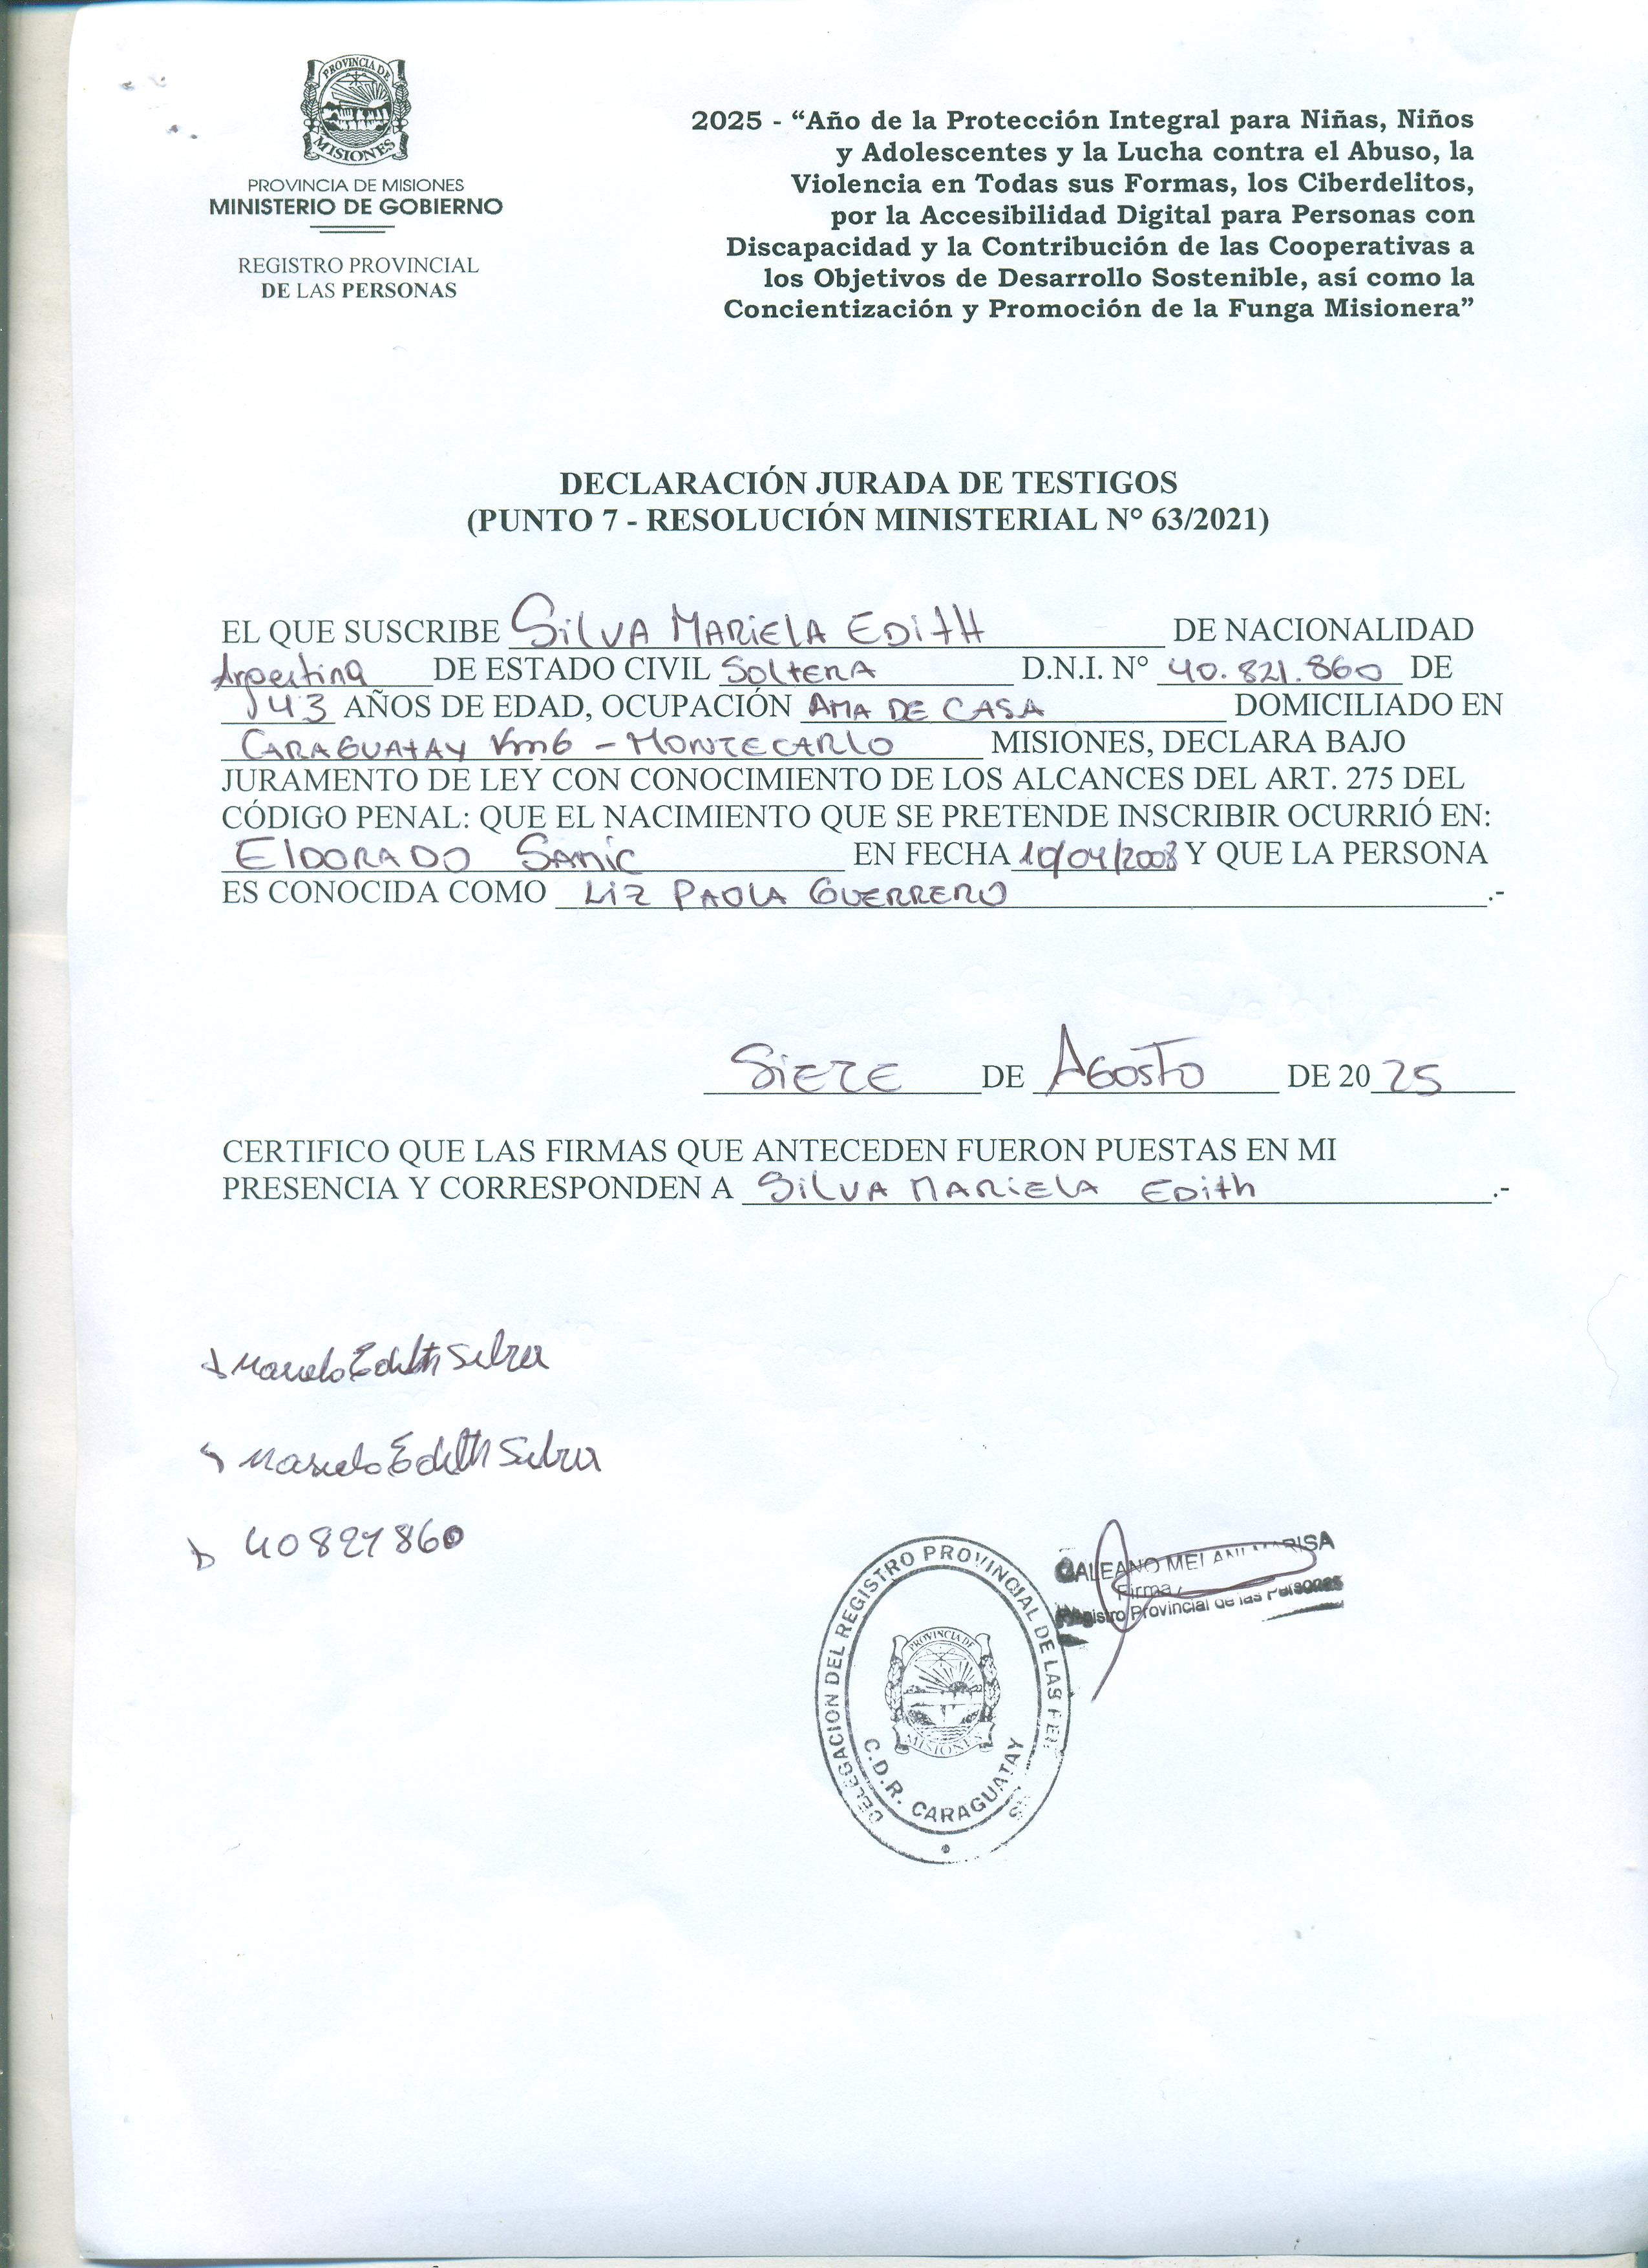 PROVINCIA DE
MISIONES
PROVINCIA DE MISIONES
MINISTERIO DE GOBIERNO
REGISTRO PROVINCIAL
DE LAS PERSONAS
2025 - “Año de la Protección Integral para Niñas, Niños
y Adolescentes y la Lucha contra el Abuso, la
Violencia en Todas sus Formas, los Ciberdelitos,
por la Accesibilidad Digital para Personas con
Discapacidad y la Contribución de las Cooperativas a
los Objetivos de Desarrollo Sostenible, así como la
Concientización y Promoción de la Funga Misionera”
DECLARACIÓN JURADA DE TESTIGOS
(PUNTO 7 - RESOLUCIÓN MINISTERIAL N° 63/2021)
EL QUE SUSCRIBE SilVA MARiElA EDitH DE NACIONALIDAD
Argentina DE ESTADO CIVIL SOLtERA D.N.I. N° 40.821.860 DE
43 AÑOS DE EDAD, OCUPACIÓN AMA DE CASA DOMICILIADO EN
CARAGUAtAY Km6 - MONTECARLO MISIONES, DECLARA BAJO
JURAMENTO DE LEY CON CONOCIMIENTO DE LOS ALCANCES DEL ART. 275 DEL
CÓDIGO PENAL: QUE EL NACIMIENTO QUE SE PRETENDE INSCRIBIR OCURRIÓ EN:
ElDORADO SAMiC EN FECHA 10/04/2008 Y QUE LA PERSONA
ES CONOCIDA COMO LiZ PAOLA GUERRERO.-
SiETE DE AGOSTO DE 2025
CERTIFICO QUE LAS FIRMAS QUE ANTECEDEN FUERON PUESTAS EN MI
PRESENCIA Y CORRESPONDEN A SilVA MARiElA EDith.-
Mariela Edith Silva
Mariela Edith Silva
40821860
GALEANO MARISA
Firma
Registro Provincial de las Personas
DELEGACION DEL REGISTRO PROVINCIAL DE LAS
PROVINCIA DE
MISIONES
C.D.R. CARAGUATAY